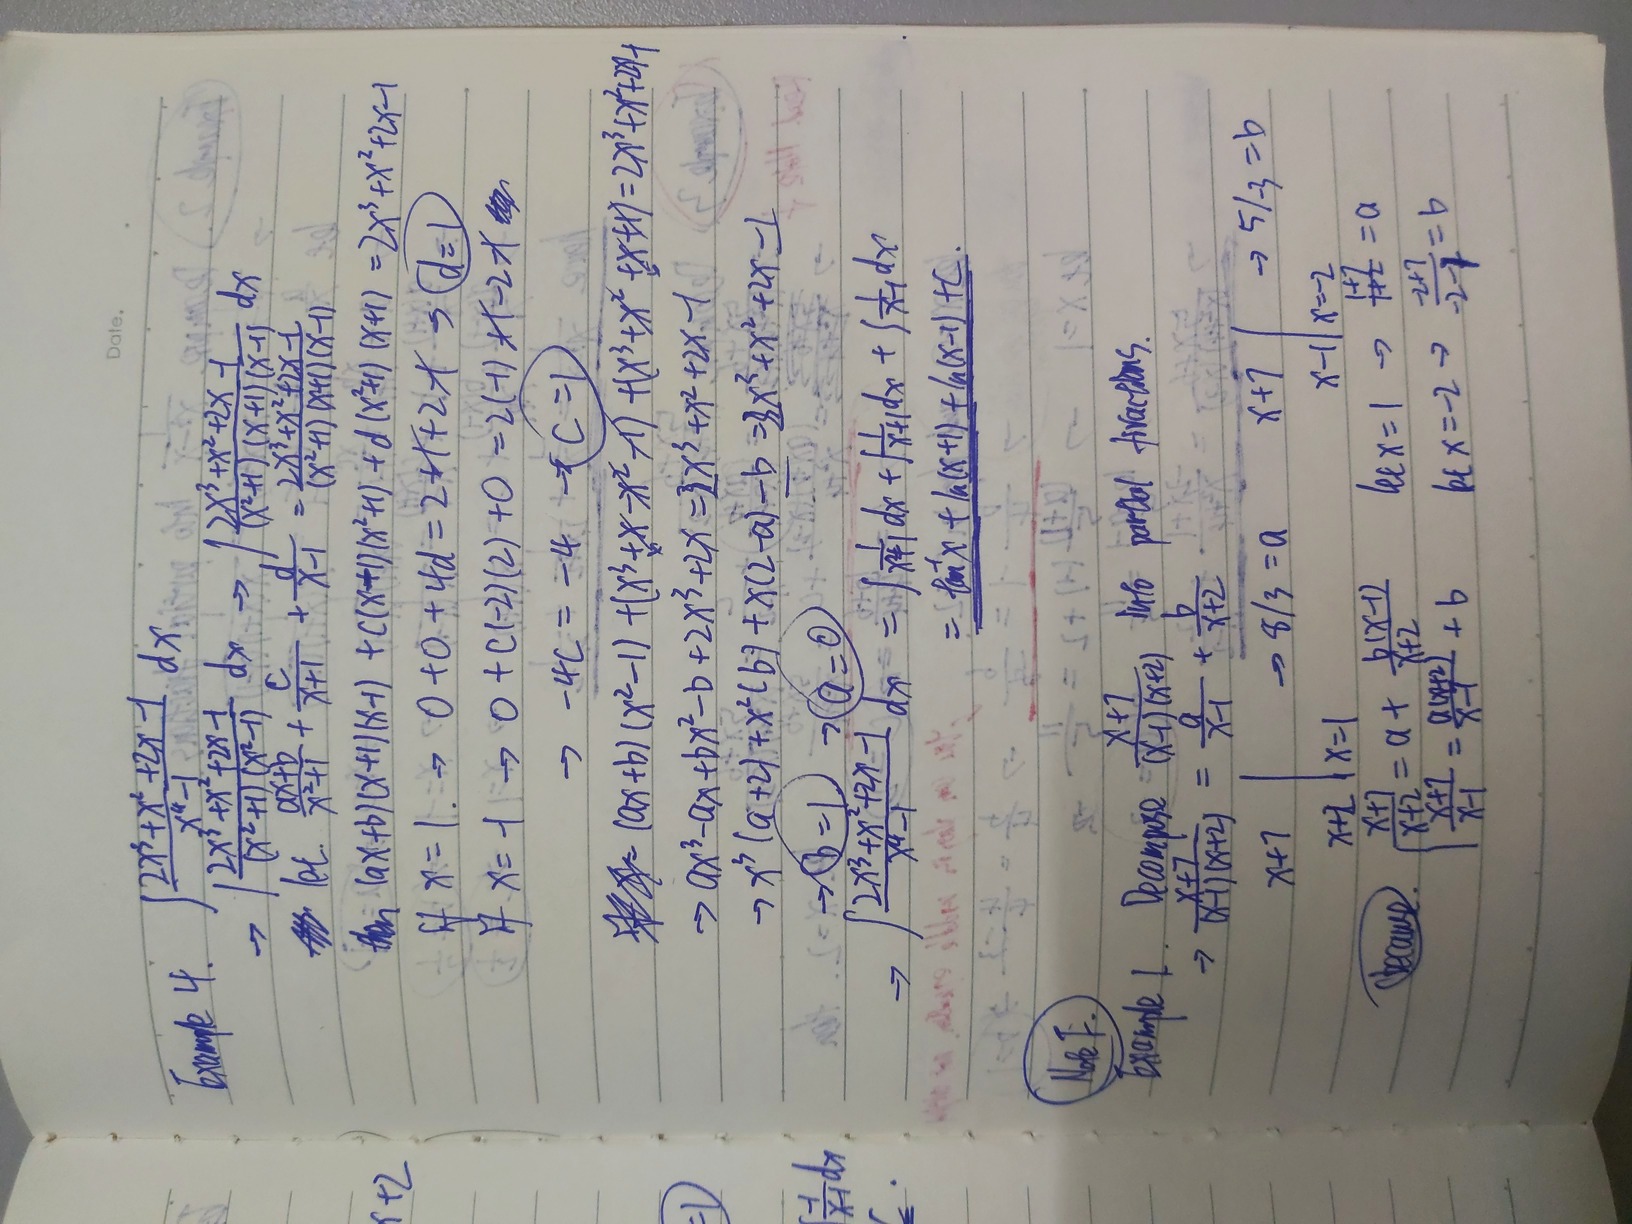 Date.
Example 4. ∫ (2x³+x²+2x-1)/(x⁴-1) dx
→ ∫ (2x³+x²+2x-1)/((x²+1)(x²-1)) dx → ∫ (2x³+x²+2x-1)/((x²+1)(x+1)(x-1)) dx
let. (ax+b)/(x²+1) + c/(x+1) + d/(x-1) = (2x³+x²+2x-1)/((x²+1)(x+1)(x-1))
then (ax+b)(x+1)(x-1) + c(x-1)(x²+1) + d(x²+1)(x+1) = 2x³+x²+2x-1
x+2
If x=1. → 0+0+4d=2+1+2-1 → d=1
If x=-1 → 0+c(-2)(2)+0 =2(-1)+1-2-1
→ -4c = -4 → c=1
(ax+b)(x²-1)+(x³+x-x²-1)+(x³+x²+x+1)=2x³+x²+2x-1
=1
→ ax³-ax+bx²-b+2x³+2x=2x³+x²+2x-1
→ x³(a+2)+x²(b)+x(2-a)-b=2x³+x²+2x-1
∫ -1/(x-1) dx
→ b=1 → a=0
→ ∫ (2x³+x²+2x-1)/(x⁴-1) dx = ∫ 1/(x²+1) dx + ∫ 1/(x+1) dx + ∫ 1/(x-1) dx
c.
= tan⁻¹x + ln(x+1) + ln(x-1) + C.
Note F.
Example 1. Decompose (x+7)/((x-1)(x+2)) into partial fractions.
→ (x+7)/((x-1)(x+2)) = a/(x-1) + b/(x+2)
x+7 → 8/3 = a x+7 → 5/-3 = b
x+2 | x=1 x-1 | x=-2
because. (x+7)/(x+2) = a + b(x-1)/(x+2) let x=1 → (1+7)/(1+2) = a
(x+7)/(x-1) = a(x+2)/(x-1) + b let x=-2 → (-2+7)/(-2-1) = b